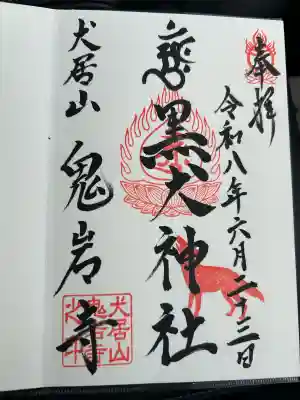 奉拝
令和八年六月二十三日
黒犬神社
犬居山 鬼岩寺
犬居山
鬼岩寺